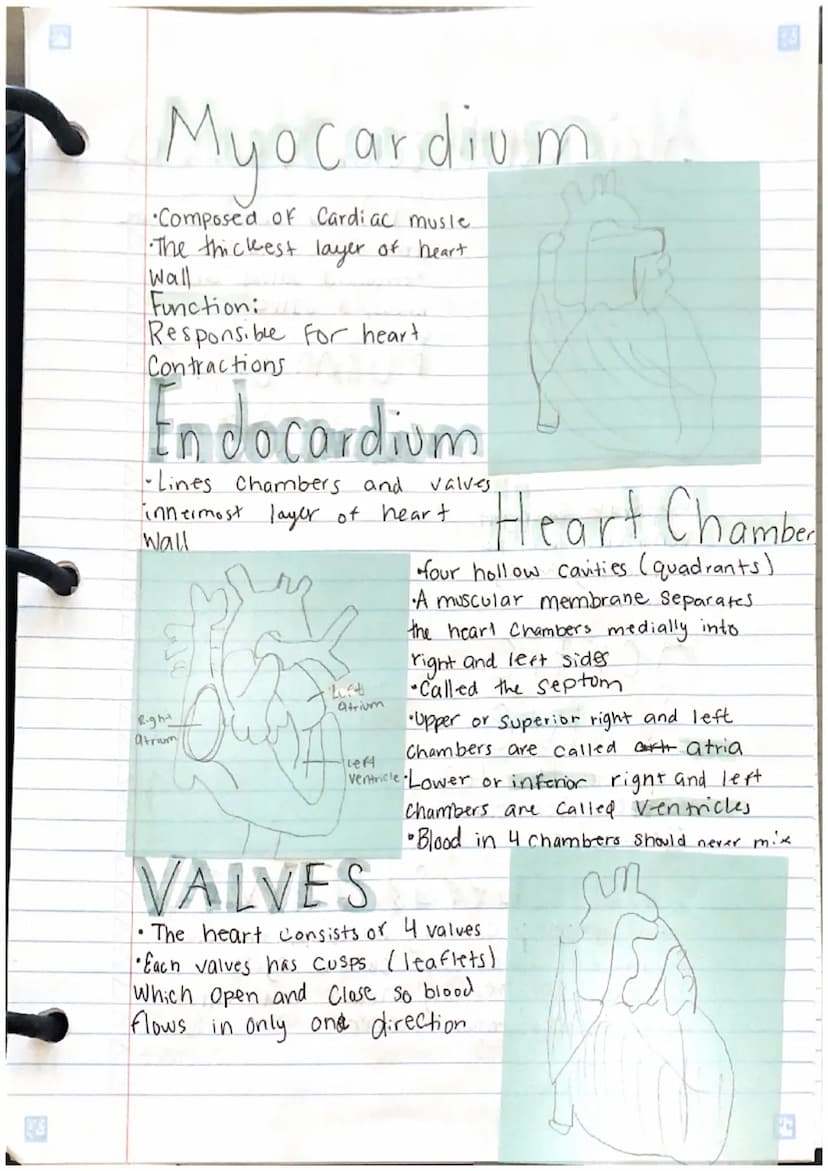 Myocardium
•Composed of Cardiac musle
•The thickest layer of heart
Wall
Function:
Responsible for heart
Contractions
Endocardium
•Lines Chambers and valves
innermost layer of heart
Wall
Heart Chamber
•four hollow cavities (quadrants)
•A muscular membrane separates
the heart Chambers medially into
right and left sides
•Called the septom
•Upper or superior right and left
chambers are called atria
•Lower or inferior right and left
Chambers are called ventricles
•Blood in 4 chambers should never mix
Right
atrium
Left
atrium
Left
ventricle
VALVES
• The heart consists of 4 valves
•Each valves has cusps (leaflets)
which open and close so blood
flows in only one direction